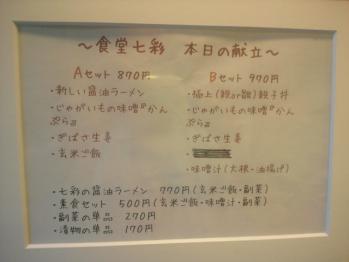 ～食堂七彩 本日の献立～
Aセット 870円
・新しい醤油ラーメン
・じゃがいもの味噌『かん
ぷら』
・ぎばさ生姜
・玄米ご飯
Bセット 970円
・極上(親or雛)親子丼
・じゃがいもの味噌『かん
ぷら』
・ぎばさ生姜
・味噌汁(大根・油揚げ)
・七彩の醤油ラーメン 770円(玄米ご飯・副菜)
・素食セット 500円(玄米ご飯・味噌汁・副菜)
・副菜の単品 270円
・漬物の単品 170円